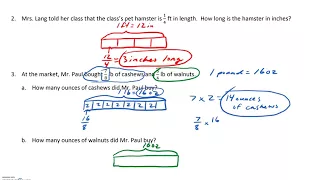 2. Mrs. Lang told her class that the class's pet hamster is 1/4 ft in length. How long is the hamster in inches?
1ft = 12in
12/4 = 3 inches long
3. At the market, Mr. Paul bought 7/8 lb of cashews and lb of walnuts.
1 pound = 16oz
a. How many ounces of cashews did Mr. Paul buy?
2 2 2 2 2 2 2
7 x 2 = 14 ounces of cashews
16/8
7/8 * 16
b. How many ounces of walnuts did Mr. Paul buy?
16oz